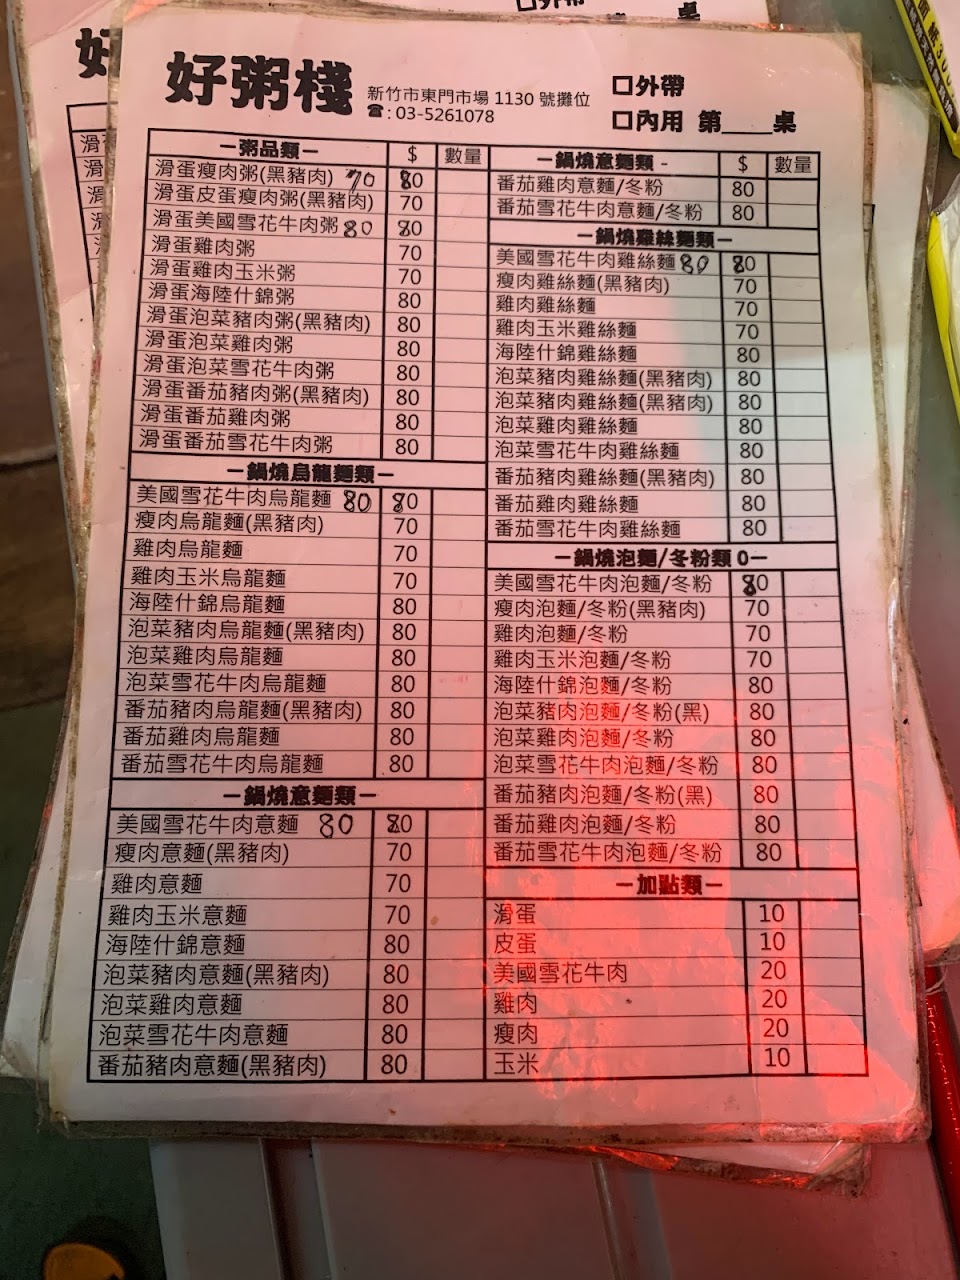 好粥棧
新竹市東門市場 1130 號攤位
☎:03-5261078
□外帶
□內用 第____桌
－粥品類－ $ 數量
滑蛋瘦肉粥(黑豬肉) 70 80
滑蛋皮蛋瘦肉粥(黑豬肉) 70
滑蛋美國雪花牛肉粥 80 80
滑蛋雞肉粥 70
滑蛋雞肉玉米粥 70
滑蛋海陸什錦粥 80
滑蛋泡菜豬肉粥(黑豬肉) 80
滑蛋泡菜雞肉粥 80
滑蛋泡菜雪花牛肉粥 80
滑蛋番茄豬肉粥(黑豬肉) 80
滑蛋番茄雞肉粥 80
滑蛋番茄雪花牛肉粥 80
－鍋燒烏龍麵類－
美國雪花牛肉烏龍麵 80 80
瘦肉烏龍麵(黑豬肉) 70
雞肉烏龍麵 70
雞肉玉米烏龍麵 70
海陸什錦烏龍麵 80
泡菜豬肉烏龍麵(黑豬肉) 80
泡菜雞肉烏龍麵 80
泡菜雪花牛肉烏龍麵 80
番茄豬肉烏龍麵(黑豬肉) 80
番茄雞肉烏龍麵 80
番茄雪花牛肉烏龍麵 80
－鍋燒意麵類－
美國雪花牛肉意麵 80 80
瘦肉意麵(黑豬肉) 70
雞肉意麵 70
雞肉玉米意麵 70
海陸什錦意麵 80
泡菜豬肉意麵(黑豬肉) 80
泡菜雞肉意麵 80
泡菜雪花牛肉意麵 80
番茄豬肉意麵(黑豬肉) 80
－鍋燒意麵類- $ 數量
番茄雞肉意麵/冬粉 80
番茄雪花牛肉意麵/冬粉 80
－鍋燒雞絲麵類－
美國雪花牛肉雞絲麵 80 80
瘦肉雞絲麵(黑豬肉) 70
雞肉雞絲麵 70
雞肉玉米雞絲麵 70
海陸什錦雞絲麵 80
泡菜豬肉雞絲麵(黑豬肉) 80
泡菜豬肉雞絲麵(黑豬肉) 80
泡菜雞肉雞絲麵 80
泡菜雪花牛肉雞絲麵 80
番茄豬肉雞絲麵(黑豬肉) 80
番茄雞肉雞絲麵 80
番茄雪花牛肉雞絲麵 80
－鍋燒泡麵/冬粉類 0－
美國雪花牛肉泡麵/冬粉 80
瘦肉泡麵/冬粉(黑豬肉) 70
雞肉泡麵/冬粉 70
雞肉玉米泡麵/冬粉 70
海陸什錦泡麵/冬粉 80
泡菜豬肉泡麵/冬粉(黑) 80
泡菜雞肉泡麵/冬粉 80
泡菜雪花牛肉泡麵/冬粉 80
番茄豬肉泡麵/冬粉(黑) 80
番茄雞肉泡麵/冬粉 80
番茄雪花牛肉泡麵/冬粉 80
－加點類－
滑蛋 10
皮蛋 10
美國雪花牛肉 20
雞肉 20
瘦肉 20
玉米 10